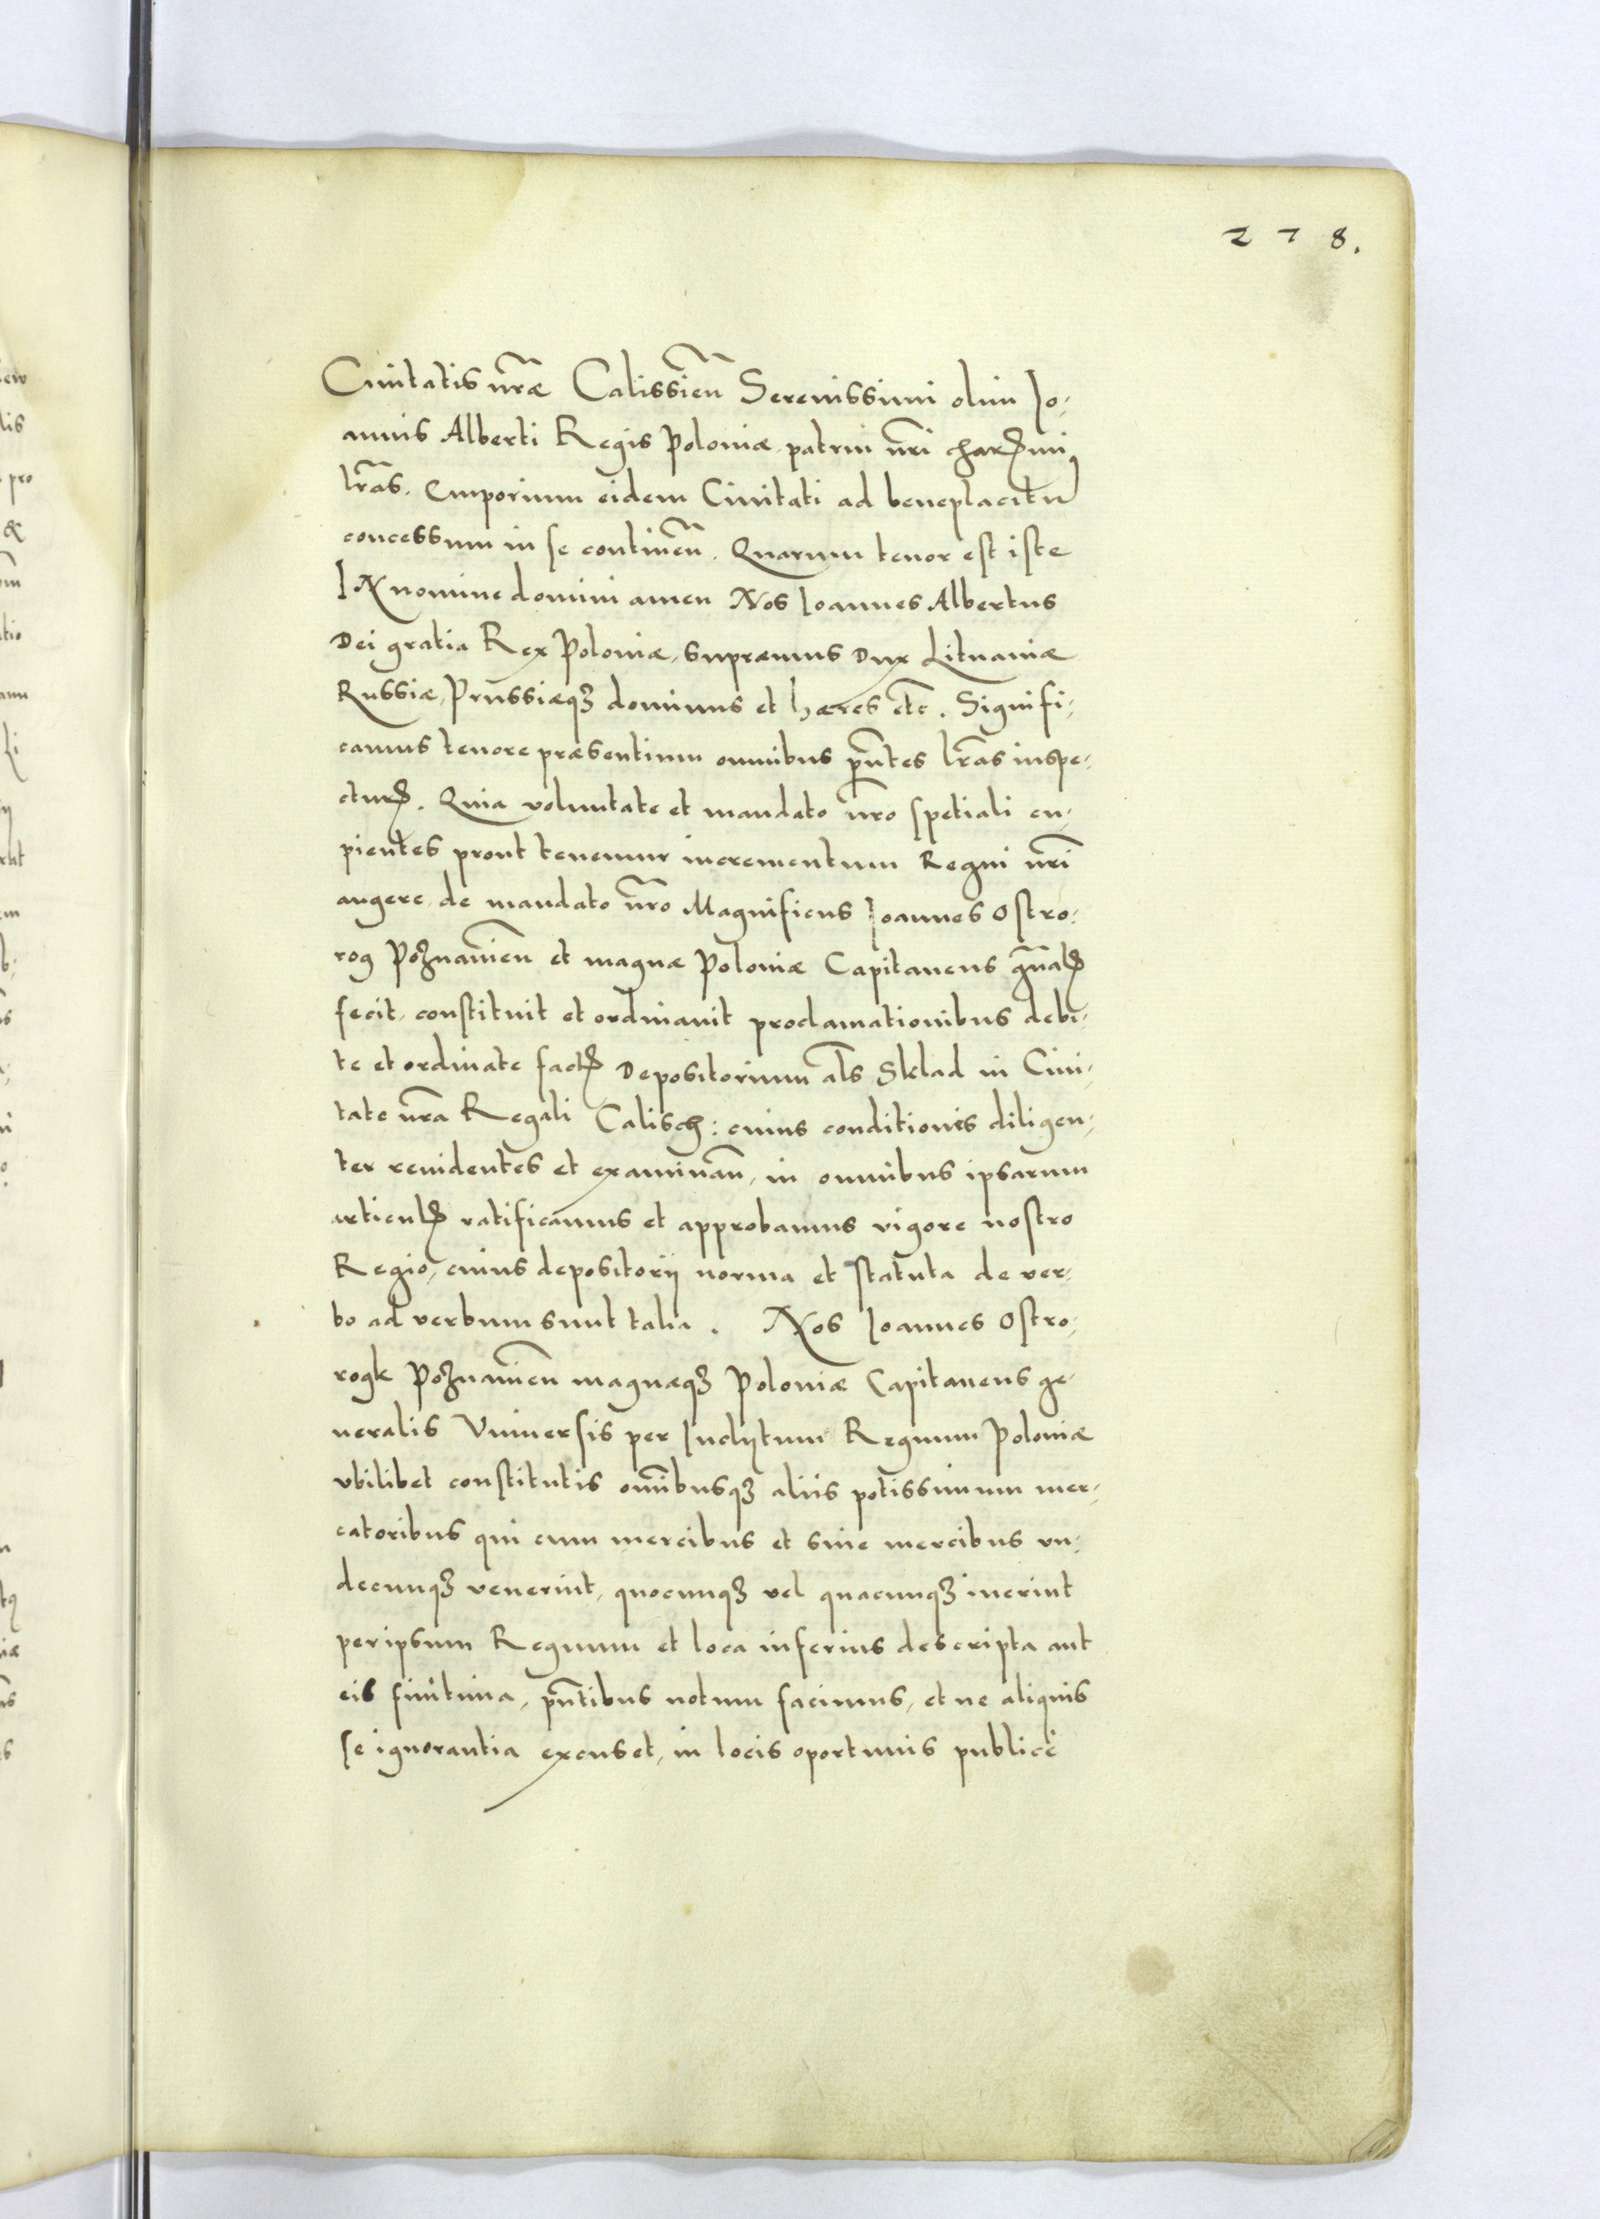 278.
Ciuitatis nr̃æ Calissień Serenissimi olim Io-
annis Alberti Regis Poloniæ, patrui nr̃i charissimi
lr̃as. Emporium eidem Ciuitati ad beneplacitũ
concessum in se continen̄. Quarum tenor est iste
IN nomine domini amen Nos Ioannes Albertus
Dei gratia Rex Poloniæ, supræmus Dux Lituaniæ
Russiæ, Prussiæqꝫ dominus et hæres etc̄. Signifi-
camus tenore præsentium omnibus pñtes lr̃as inspe-
cturꝭ. Quia voluntate et mandato nr̃o spetiali cu-
pientes prout tenemur incrementum Regni nr̃i
augere, de mandato nr̃o Magnificus Ioannes Ostro-
rog Poznanień et magnæ Poloniæ Capitaneus gñalꝭ
fecit, constituit et ordinauit proclamationibus debi-
te et ordinate factꝭ Depositorium al̄s Sklad in Ciui-
tate nr̃a Regali Calisch: cuius conditiones diligen-
ter reuidentes et examinan̄, in omnibus ipsarum
articulꝭ ratificamus et approbamus vigore nostro
Regio, cuius depositorij norma et statuta de ver-
bo ad verbum sunt talia. Nos Ioannes Ostro-
rogk Poznanień magnæqꝫ Poloniæ Capitaneus ge-
neralis Vniuersis per Inclytum Regnum Poloniæ
vbilibet constitutis om̄ibusqꝫ aliis potissimum mer-
catoribus qui cum mercibus et sine mercibus vn-
decunqꝫ venerint, quocunqꝫ vel quacunqꝫ iuerint
per ipsum Regnum et loca inferius descripta aut
eis finitima, pñtibus notum facimus, et ne aliquis
se ignorantia excuset, in locis oportunis publice